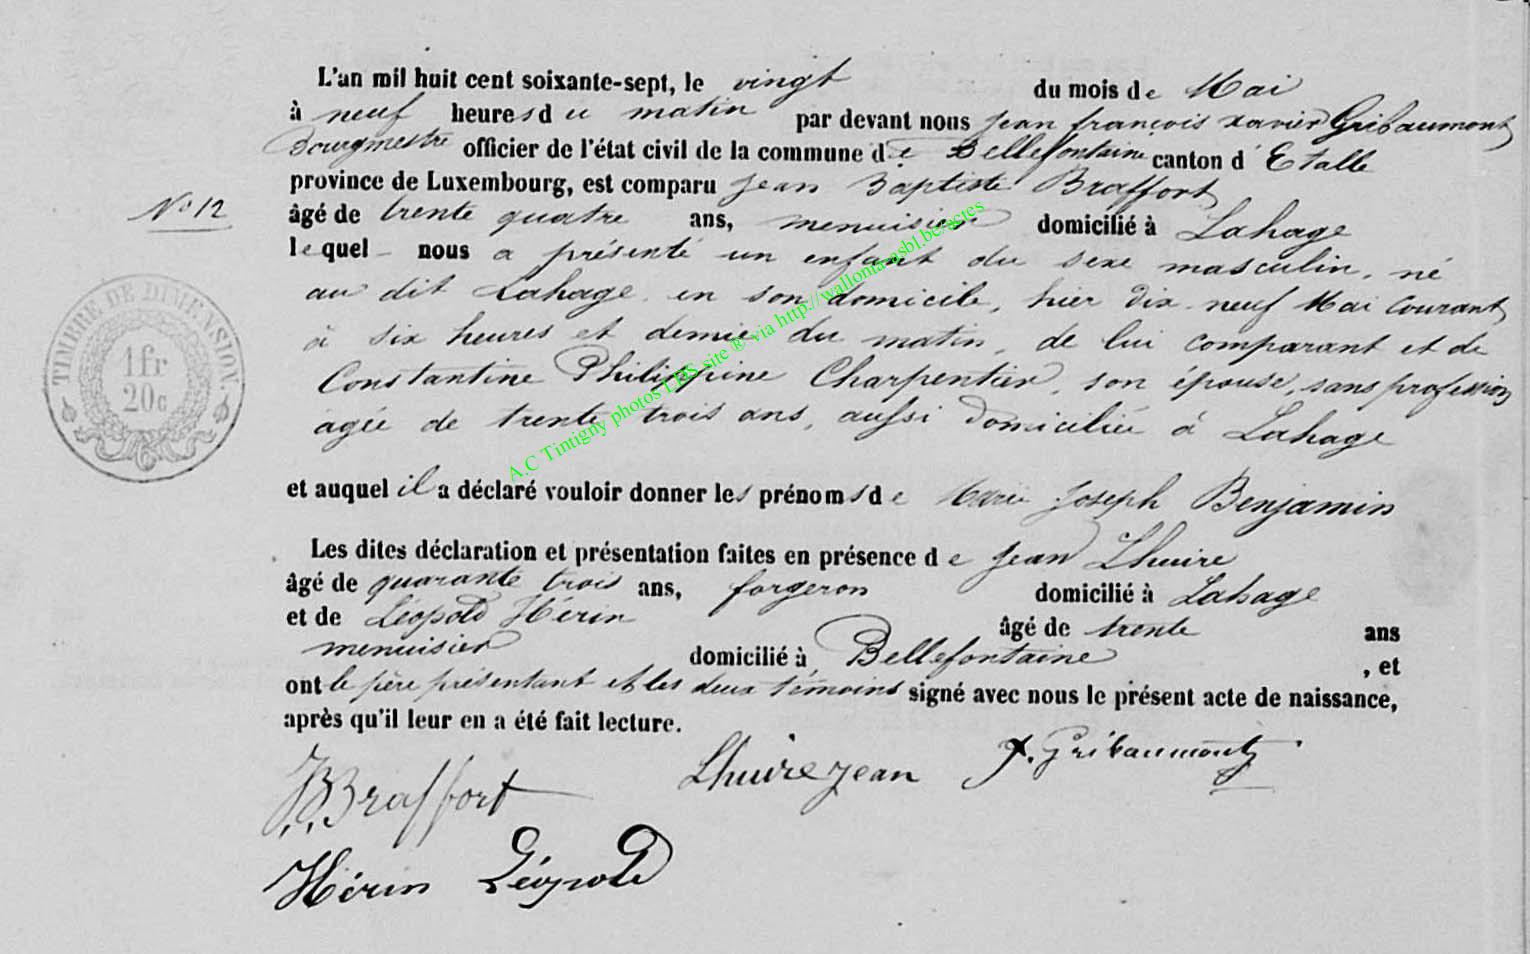 L'an mil huit cent soixante-sept, le vingt du mois de Mai
à neuf heures du matin par devant nous jean françois xavier Gribaumont
Bourgmestre officier de l'état civil de la commune de Bellefontaine canton d'Etalle
province de Luxembourg, est comparu Jean Baptiste Braffort
No 12
âgé de trente quatre ans, menuisier domicilié à Lahage
lequel nous a présenté un enfant du sexe masculin, né
au dit Lahage en son domicile, hier dix-neuf Mai courant
à six heures et demie du matin, de lui comparant et de
Constantine Philippine Charpentier, son épouse, sans profession
agée de trente trois ans, aussi domiciliée à Lahage
TIMBRE DE DIMENSION.
1fr
20c
A.C Tintigny photos LDS site ® via http://wallonia-asbl.be/actes
et auquel il a déclaré vouloir donner les prénoms de Marie Joseph Benjamin
Les dites déclaration et présentation faites en présence de Jean Lhuire
âgé de quarante trois ans, forgeron domicilié à Lahage
et de Léopold Hérin âgé de trente ans
menuisier domicilié à Bellefontaine, et
ont le père présentant et les deux témoins signé avec nous le présent acte de naissance,
après qu'il leur en a été fait lecture.
JB Braffort Lhuire jean X. Gribaumont
Hérin Léopold